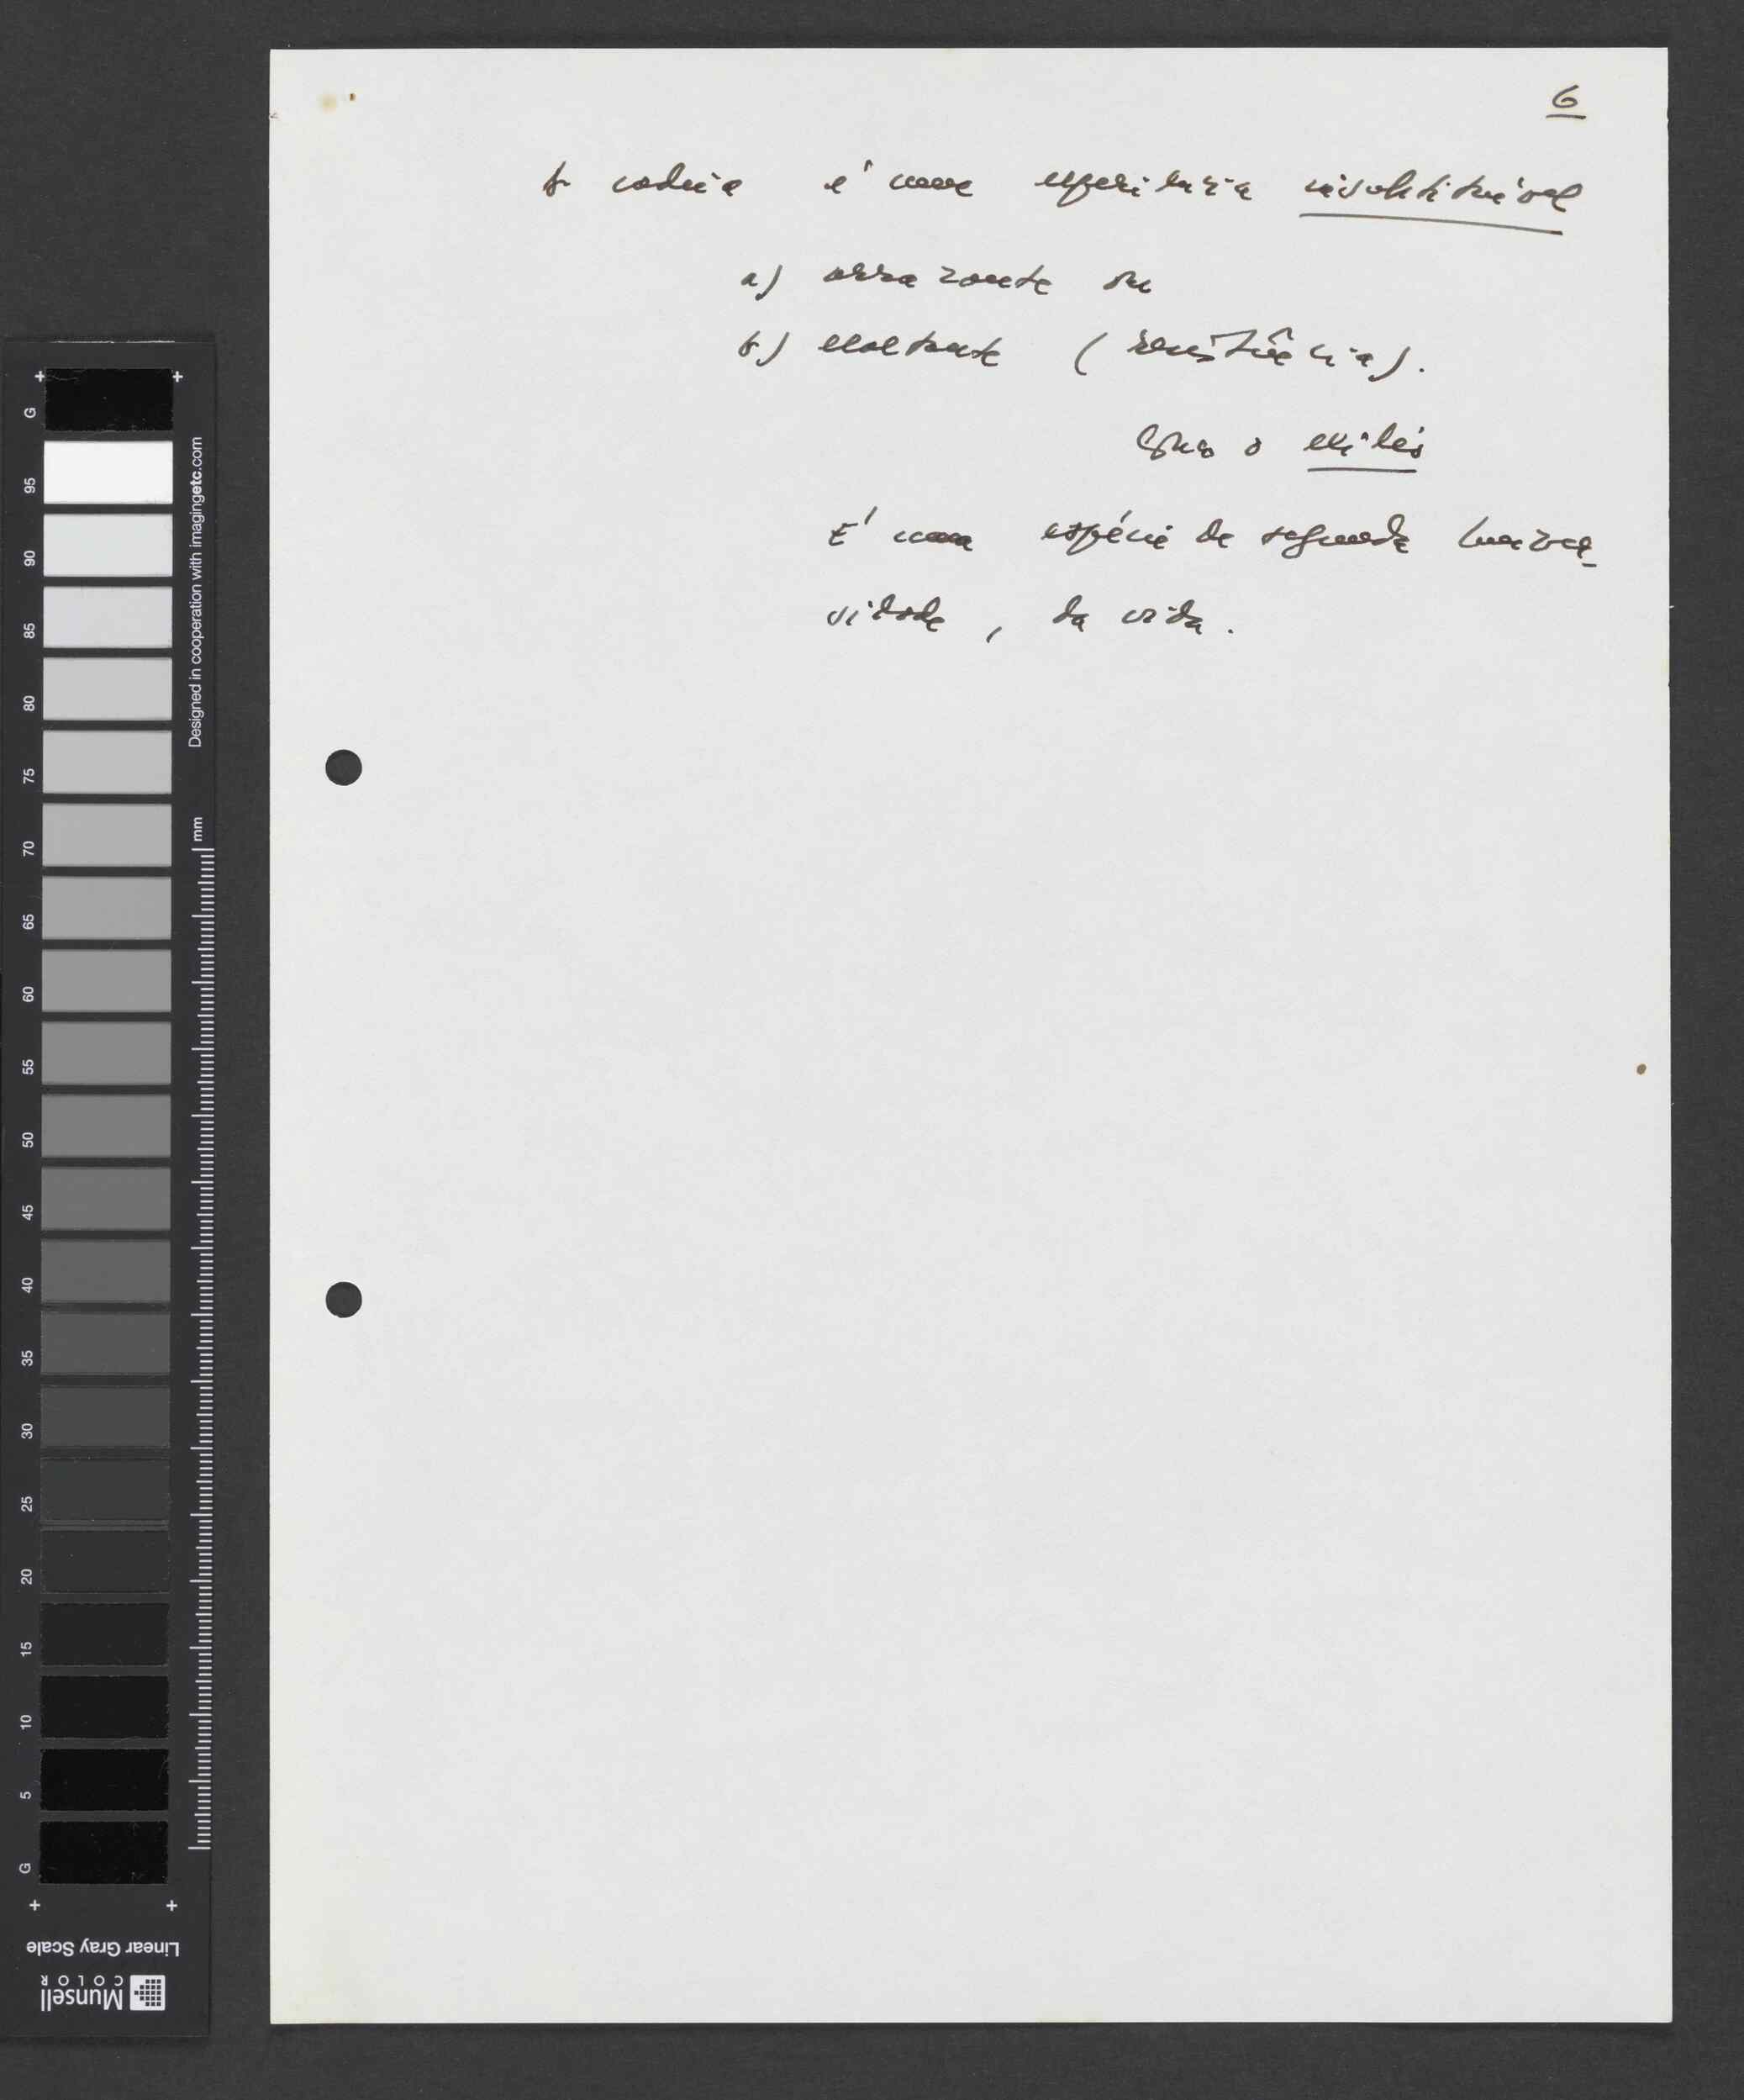 6
A cadeia é uma experiência insubstituível
a) arrazante ou
b) exaltante (resistência).
como o exílio
É uma espécie de segunda univer
sidade, da vida.
G
95
90
85
80
75
70
65
60
55
50
45
40
35
30
25
20
15
10
5
G
Designed in cooperation with imagingetc.com
mm
Linear Gray Scale
Munsell
COLOR